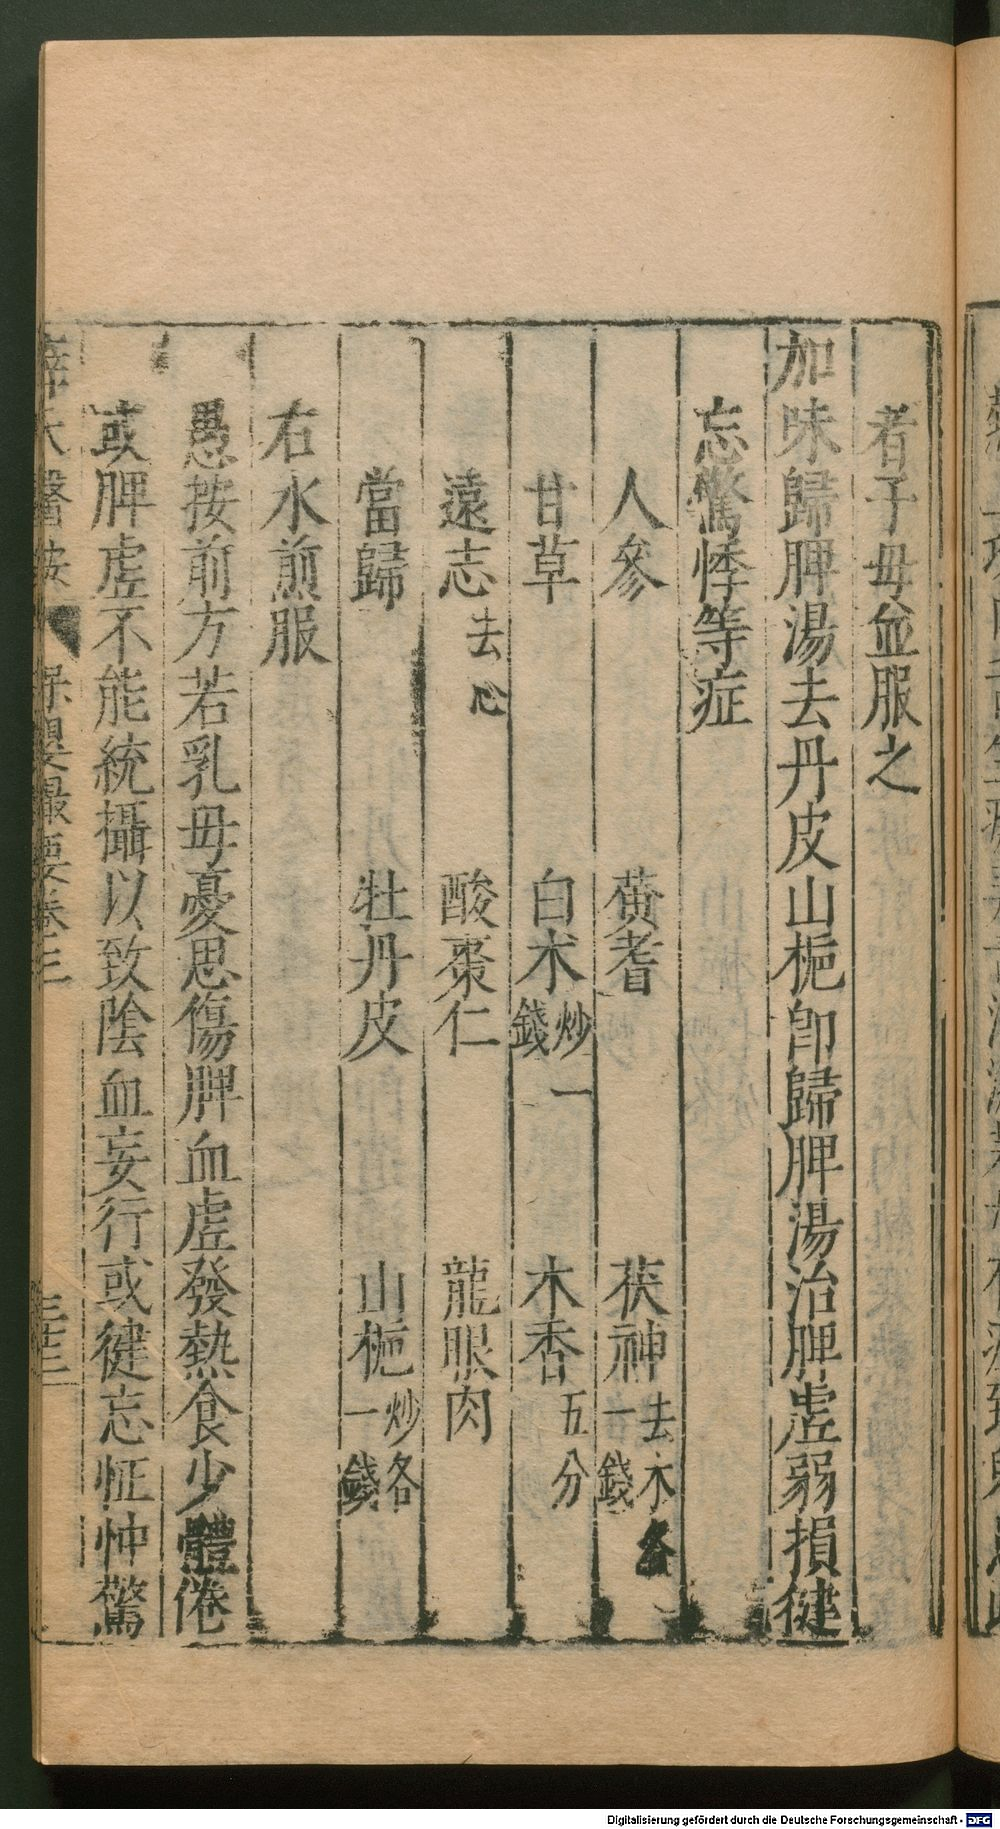 者子母並服之
加味歸脾湯去丹皮山梔卽歸脾湯治脾虛弱損健
忘驚悸等症
人參 黃耆 茯神去木各一錢
甘草 白朮炒一錢 木香五分
遠志去心 酸棗仁 龍眼肉
當歸 牡丹皮 山梔炒各一錢
右水煎服
愚按前方若乳母憂思傷脾血虛發熱食少體倦
或脾虛不能統攝以致陰血妄行或健忘怔忡驚
薛氏醫按 保嬰撮要卷三 三十三
Digitalisierung gefördert durch die Deutsche Forschungsgemeinschaft - DFG